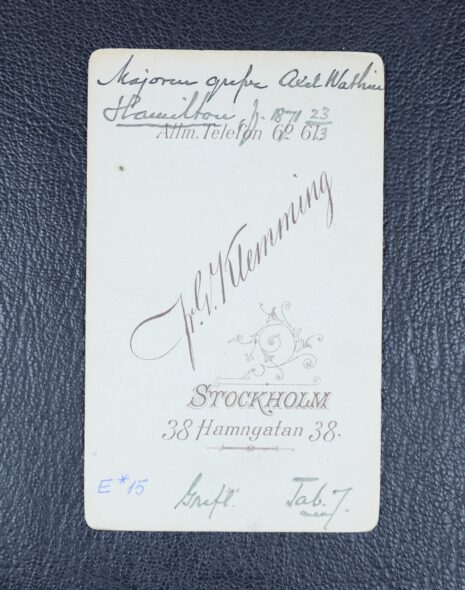 Majoren greve Axel Wathier
Hamilton, f. 1871 23/3
Allm. Telefon 62 613
Fr. G. Klemming
STOCKHOLM
38 Hamngatan 38.
E*15
Grefl. Tab. 7.